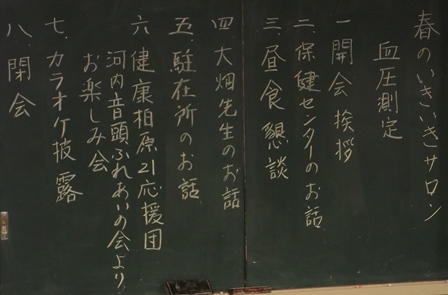 春のいきいきサロン
血圧測定
一 開会挨拶
二、保健センターのお話
三、昼食懇談
四 大畑先生のお話
五、駐在所のお話
六 健康柏原21応援団
河内音頭ふれあいの会より
お楽しみ会
七、カラオケ披露
八、閉会